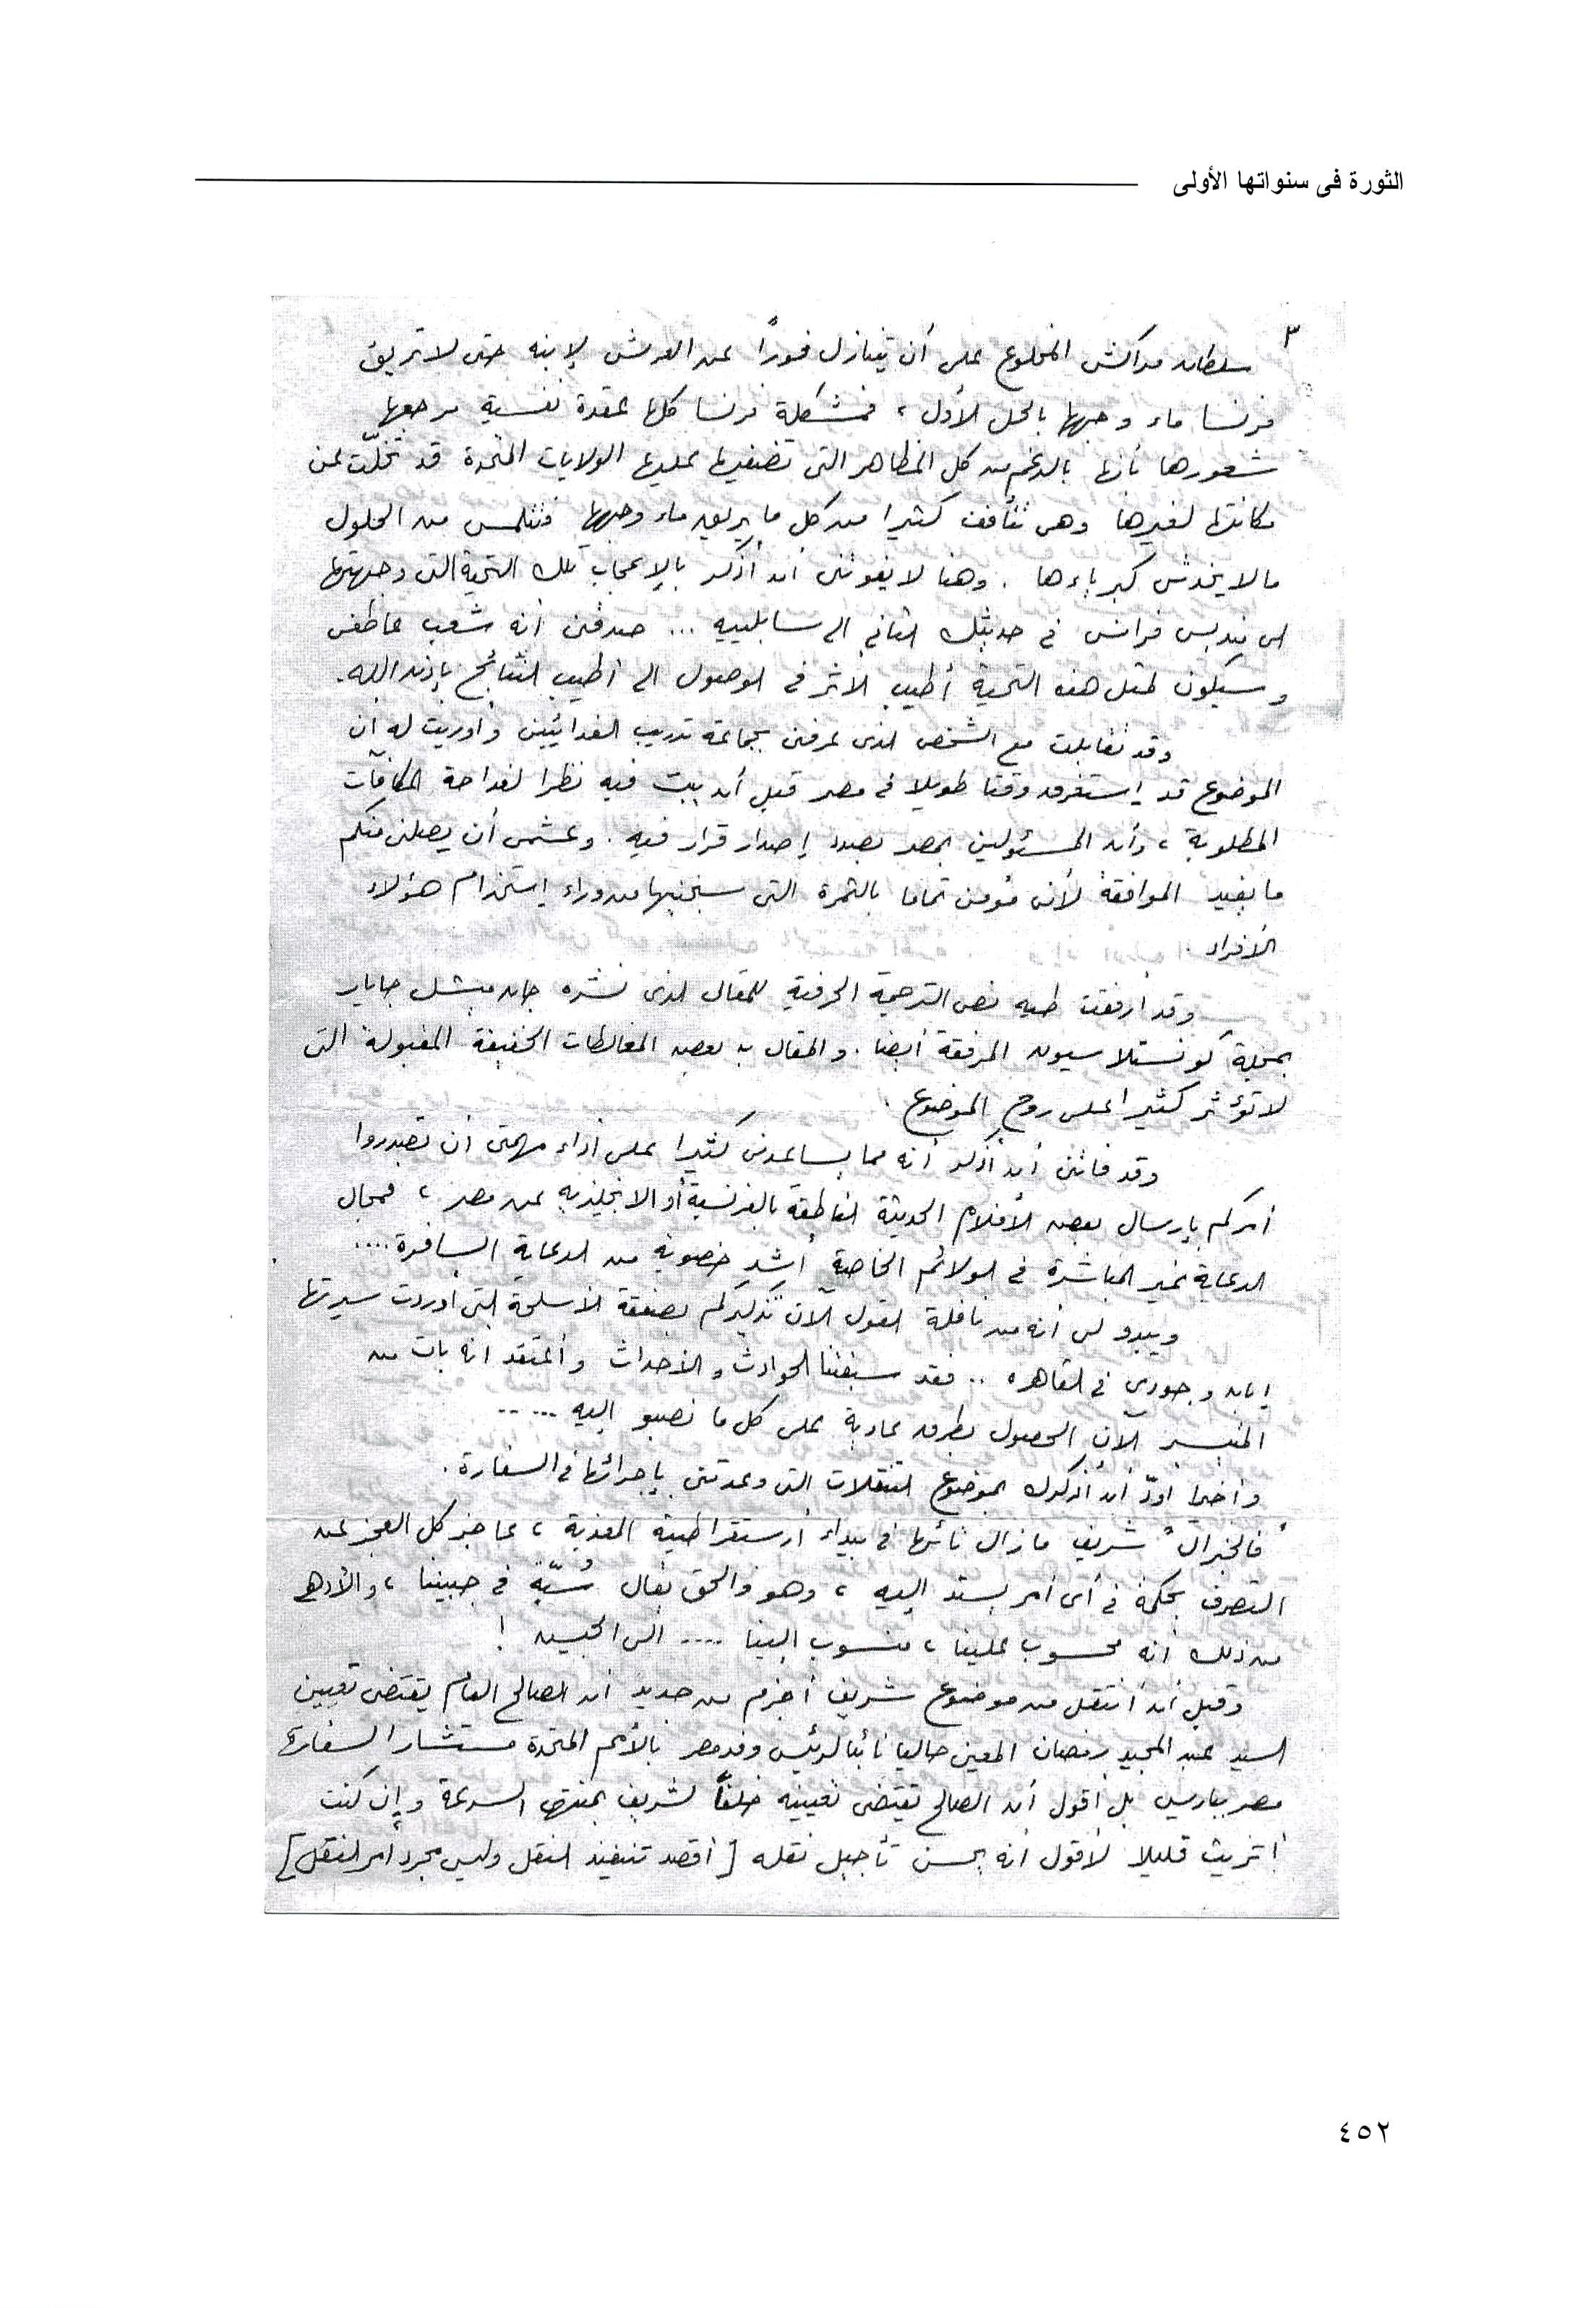 الثورة فى سنواتها الأولى
٣
سلطان مراكش المخلوع على أن يتنازل فوراً عن العرش لإبنه حتى لا تريق
فرنسا ماء وجهها بالحل الأول ، فمشكلة فرنسا كلها عقدة نفسية مرجعها
شعورها بأنها بالرغم من كل المظاهر التى تضفيها عليها الولايات المتحدة قد تخلّت عن
مكانتها لغيرها وهى تتأفف كثيرا من كل ما يريق ماء وجهها فتتلمس من الحلول
مالا يخدش كبرياءها . وهنا لا يفوتنى أن أذكر بالإعجاب تلك التحية التى وجهتها
الى منديس فرانس فى حديثك الثانى الى سابلييه ... صدقنى أنه شعب عاطفى
وسيكون لمثل هذه التحية أطيب الأثر فى الوصول الى أطيب النتائج بإذن الله .
وقد تقابلت مع الشخص الذى عرفنى بجماعة تدريب الفدائيين وأوريت له ان
الموضوع قد إستغرق وقتا طويلا فى مصر قبل أن يبت فيه نظرا لفداحة المكافآت
المطلوبة ، وأن المسئولين بمصر بصدد إصدار قرار فيه . وعشمى أن يصلنى منكم
ما يفيد الموافقة لأنى مؤمن تماما بالثمرة التى سنجنيها من وراء إستخدام هؤلاء
الأفراد .
وقد أرفقت طيه نص الترجمة الحرفية للمقال الذى نشره جان ميشل جايار
بمجلة كونستلاسيون المرفقة أيضا . والمقال به بعض المغالطات الخفيفة المقبولة التى
لا تؤثر كثيرا على روح الموضوع .
وقد فاتنى أن أذكر أنه مما يساعدنى كثيرا على أداء مهمتى أن تصدروا
أمركم بإرسال بعض الأفلام الحديثة الناطقة بالفرنسية أو الانجليزيه عن مصر ، فمجال
الدعاية غير المباشرة فى الولائم الخاصة أشد خصوبة من الدعاية السافرة ....
ويبدو لى أنه من نافلة القول الآن تذكيركم بصفقة الأسلحة التى أوردت سيرتها
إبان وجودى فى القاهره .. فقد سبقتنا الحوادث والأحداث وأعتقد انه بات من
المتيسر الآن الحصول بطرق عادية على كل ما نصبو اليه .....
وأخيرا اودّ أن أذكرك بموضوع التنقلات التى وعدتنى بإجرائها فى السفارة .
"فالجنرال" شريف مازال تائها فى بيداء أرستقراطيته المغذية ، عاجز كل العجز عن
التصرف بحكمة فى أى أمر يسند إليه ، وهو والحق يقال سُبّة فى جبيننا ، والأدهى
من ذلك أنه محسوب علينا ، منسوب الينا .... الى الجيش !
وقبل أن أنتقل من موضوع شريف أجزم من جديد أن الصالح العام يقتضى تعيين
السيد عبد المجيد رمضان المعين حاليا نائبا لرئيس وفد مصر بالأمم المتحدة مستشارا لسفارة
مصر بباريس بل أقول أن الصالح يقتضى تعيينه خلفاً لشريف بمنتهى السرعة وإن كنت
أتريث قليلا لأقول أنه يحسن تأجيل نقله [ أقصد تنفيذ النقل وليس مجرد أمر النقل ]
٤٥٢